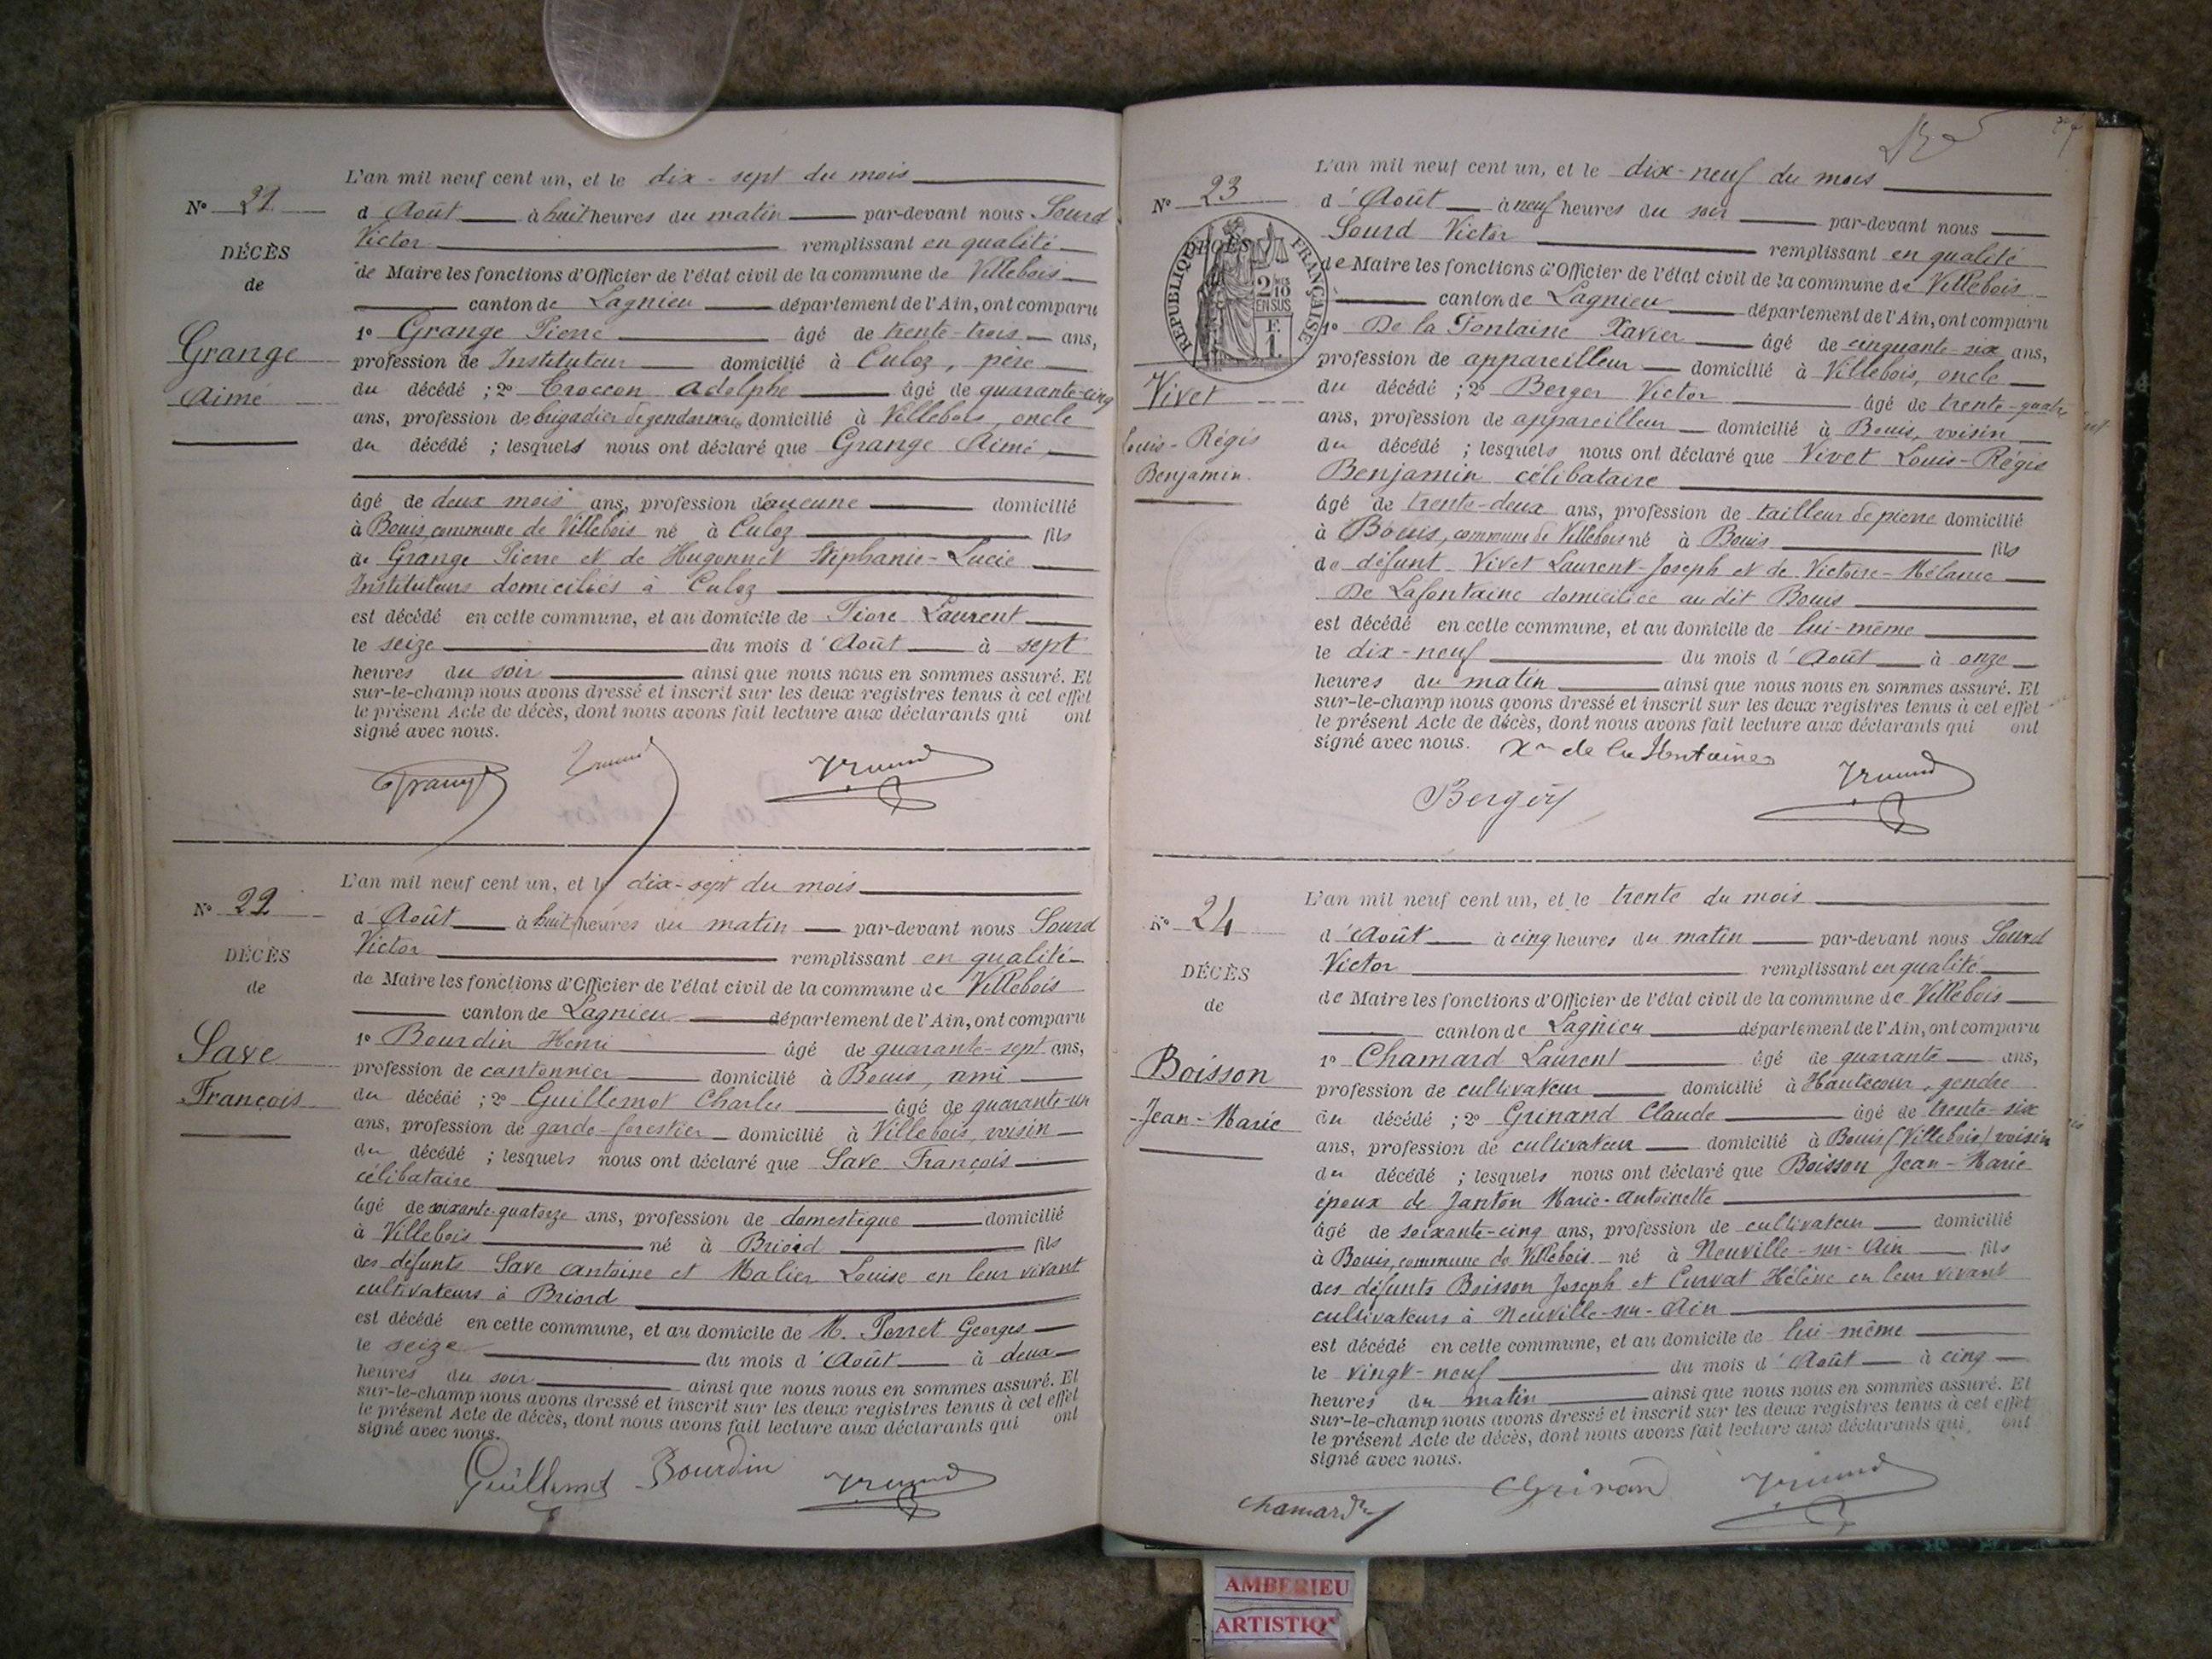 L'an mil neuf cent un, et le dix-sept du mois
N° 21
d'Août à huit heures du matin par-devant nous Sourd
Victor remplissant en qualité
DÉCÈS
de Maire les fonctions d'Officier de l'état civil de la commune de Villebois
de
canton de Lagnieu département de l'Ain, ont comparu
1° Grange Pierre âgé de trente-trois ans,
Grange
profession de Instituteur domicilié à Culoz, père
Aimé
du décédé ; 2° Croccon Adolphe âgé de quarante-cinq
ans, profession de brigadier de gendarmerie domicilié à Villebois, oncle
du décédé ; lesquels nous ont déclaré que Grange Aimé
âgé de deux mois ans, profession d'aucune domicilié
à Bouis, commune de Villebois né à Culoz fils
de Grange Pierre et de Hugonnet Stéphanie-Lucie
Instituteurs domiciliés à Culoz
est décédé en cette commune, et au domicile de Fiore Laurent
le seize du mois d'Août à sept
heures du soir ainsi que nous nous en sommes assuré. Et
sur-le-champ nous avons dressé et inscrit sur les deux registres tenus à cet effet
le présent Acte de décès, dont nous avons fait lecture aux déclarants qui ont
signé avec nous.
L'an mil neuf cent un, et le dix-sept du mois
N° 22
d'Août à huit heures du matin par-devant nous Sourd
Victor remplissant en qualité
DÉCÈS
de Maire les fonctions d'Officier de l'état civil de la commune de Villebois
de
canton de Lagnieu département de l'Ain, ont comparu
1° Bourdin Henri âgé de quarante-sept ans,
Save
profession de cantonnier domicilié à Bouis, ami
François
du décédé ; 2° Guillemot Charles âgé de quarante-un
ans, profession de garde-forestier domicilié à Villebois, voisin
du décédé ; lesquels nous ont déclaré que Save François
célibataire
âgé de soixante-quatorze ans, profession de domestique domicilié
à Villebois né à Briord fils
des défunts Save Antoine et Malier Louise en leur vivant
cultivateurs à Briord
est décédé en cette commune, et au domicile de M. Perret Georges
le seize du mois d'Août à deux
heures du soir ainsi que nous nous en sommes assuré. Et
sur-le-champ nous avons dressé et inscrit sur les deux registres tenus à cet effet
le présent Acte de décès, dont nous avons fait lecture aux déclarants qui ont
signé avec nous.
Guillemot Bourdin
L'an mil neuf cent un, et le dix-neuf du mois
N° 23
d'Août à neuf heures du soir par-devant nous
Sourd Victor remplissant en qualité
DÉCÈS
RÉPUBLIQUE FRANÇAISE
2/10 EN SUS
F. 1
de Maire les fonctions d'Officier de l'état civil de la commune de Villebois
canton de Lagnieu département de l'Ain, ont comparu
1° De la Fontaine Xavier âgé de cinquante-six ans,
profession de appareilleur domicilié à Villebois, oncle
Vivet
du décédé ; 2° Berger Victor âgé de trente-quatre
ans, profession de appareilleur domicilié à Bouis, voisin
Louis-Régis
du décédé ; lesquels nous ont déclaré que Vivet Louis-Régis
Benjamin
Benjamin célibataire
âgé de trente-deux ans, profession de tailleur de pierre domicilié
à Bouis, commune de Villebois né à Bouis fils
de défunt Vivet Laurent-Joseph et de Victoire-Mélanie
De Lafontaine domiciliée au dit Bouis
est décédé en cette commune, et au domicile de lui-même
le dix-neuf du mois d'Août à onze
heures du matin ainsi que nous nous en sommes assuré. Et
sur-le-champ nous avons dressé et inscrit sur les deux registres tenus à cet effet
le présent Acte de décès, dont nous avons fait lecture aux déclarants qui ont
signé avec nous. Xer de la Fontaine
Berger
L'an mil neuf cent un, et le trente du mois
N° 24
d'Août à cinq heures du matin par-devant nous Sourd
Victor remplissant en qualité
DÉCÈS
de Maire les fonctions d'Officier de l'état civil de la commune de Villebois
de
canton de Lagnieu département de l'Ain, ont comparu
1° Chamard Laurent âgé de quarante ans,
Boisson
profession de cultivateur domicilié à Hautecour, gendre
Jean-Marie
du décédé ; 2° Grinand Claude âgé de trente-six
ans, profession de cultivateur domicilié à Bouis (Villebois) voisin
du décédé ; lesquels nous ont déclaré que Boisson Jean-Marie
époux de Janton Marie-Antoinette
âgé de soixante-cinq ans, profession de cultivateur domicilié
à Bouis, commune de Villebois né à Neuville-sur-Ain fils
des défunts Boisson Joseph et Curvat Hélène en leur vivant
cultivateurs à Neuville-sur-Ain
est décédé en cette commune, et au domicile de lui-même
le vingt-neuf du mois d'Août à cinq
heures du matin ainsi que nous nous en sommes assuré. Et
sur-le-champ nous avons dressé et inscrit sur les deux registres tenus à cet effet
le présent Acte de décès, dont nous avons fait lecture aux déclarants qui ont
signé avec nous.
Chamard Grinand
AMBERIEU
ARTISTIQ